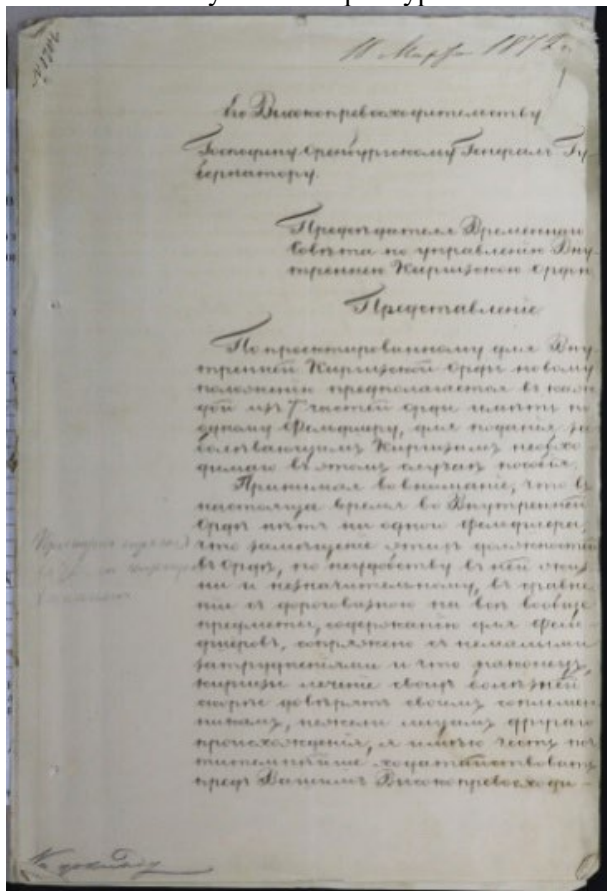 11 Марта 1872 г.
Его Высокопревосходительству
Господину Оренбургскому Генералъ Гу-
бернатору.
Предсѣдателя Временнаго
Совѣта по управленію Вну-
тренней Киргизской Ордой
Представленіе
По проектированному для Вну-
тренней Киргизской Орды новому
положенію предполагается въ каж-
дой изъ 7 частей орды имѣть по
одному Фельдшеру, для поданія за
болѣвающимъ Киргизамъ необхо-
димаго въ этомъ случаѣ пособія.
Принимая во вниманіе, что въ
настоящее время во Внутренней
Ордѣ нѣтъ ни одного фельдшера,
что замѣщеніе этихъ должностей
въ Ордѣ, по неудобству въ ней жиз
ни и незначительному, въ сравне
ніе съ дороговизною на всѣ вообще
предметы, содержанію для фельд-
шеровъ, сопряжено съ немалыми
затрудненіями и что наконецъ,
киргизы леченіе своихъ болѣзней
скорѣе довѣрятъ своимъ соплемен
никамъ, нежели лицамъ другаго
происхожденія, я имѣю честь поч
тительнѣйше ходатайствовать
предъ Вашимъ Высокопревосходи-
Къ докладу